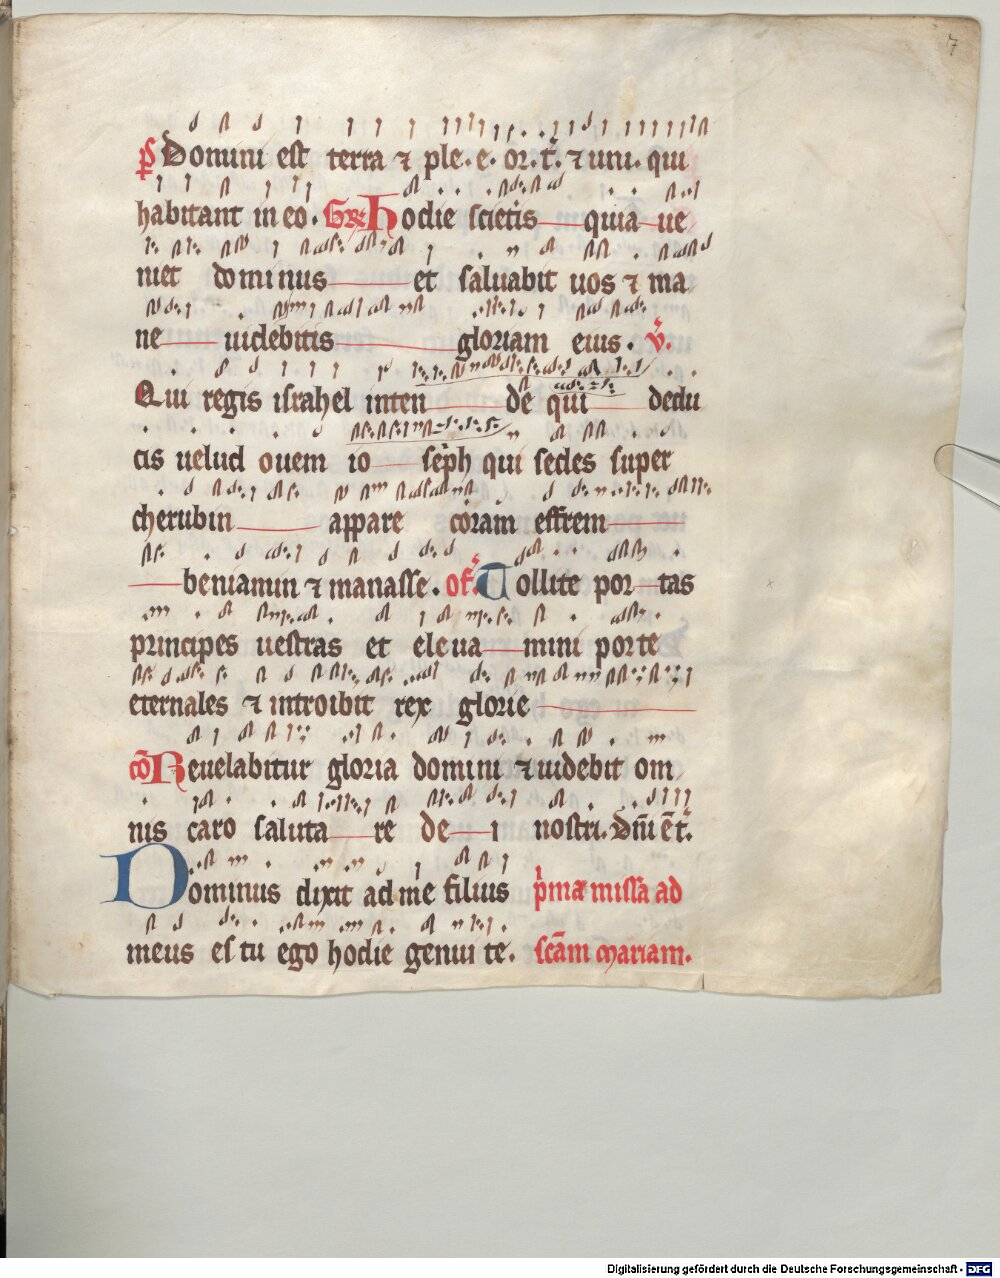 7
ps Domini est terra ⁊ ple. e. or. t͛. ⁊ uni. qui
habitant in eo. Gr̃ Hodie scietis quia ue
niet dominus et saluabit uos ⁊ ma
ne uidebitis gloriam eius. v̾.
Qui regis israhel inten de qui dedu
cis uelud ouem io seph qui sedes super
cherubin appare coram effrem
beniamin ⁊ manasse. of̾. Tollite por tas
principes uestras et eleua mini porte
eternales ⁊ introibit rex glorie
cō Reuelabitur gloria domini ⁊ uidebit om
nis caro saluta re de i nostri. Dñi ē t͛.
Dominus dixit ad me filius p̾ma missa ad
meus es tu ego hodie genui te. scām mariam.
Digitalisierung gefördert durch die Deutsche Forschungsgemeinschaft - DFG